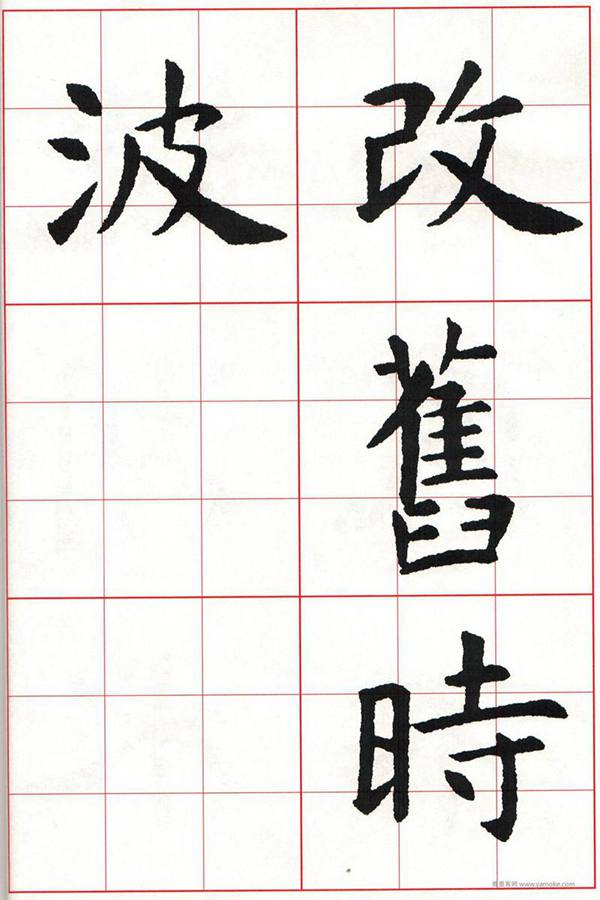 改舊時
波
雅墨客网 www.yamoke.com